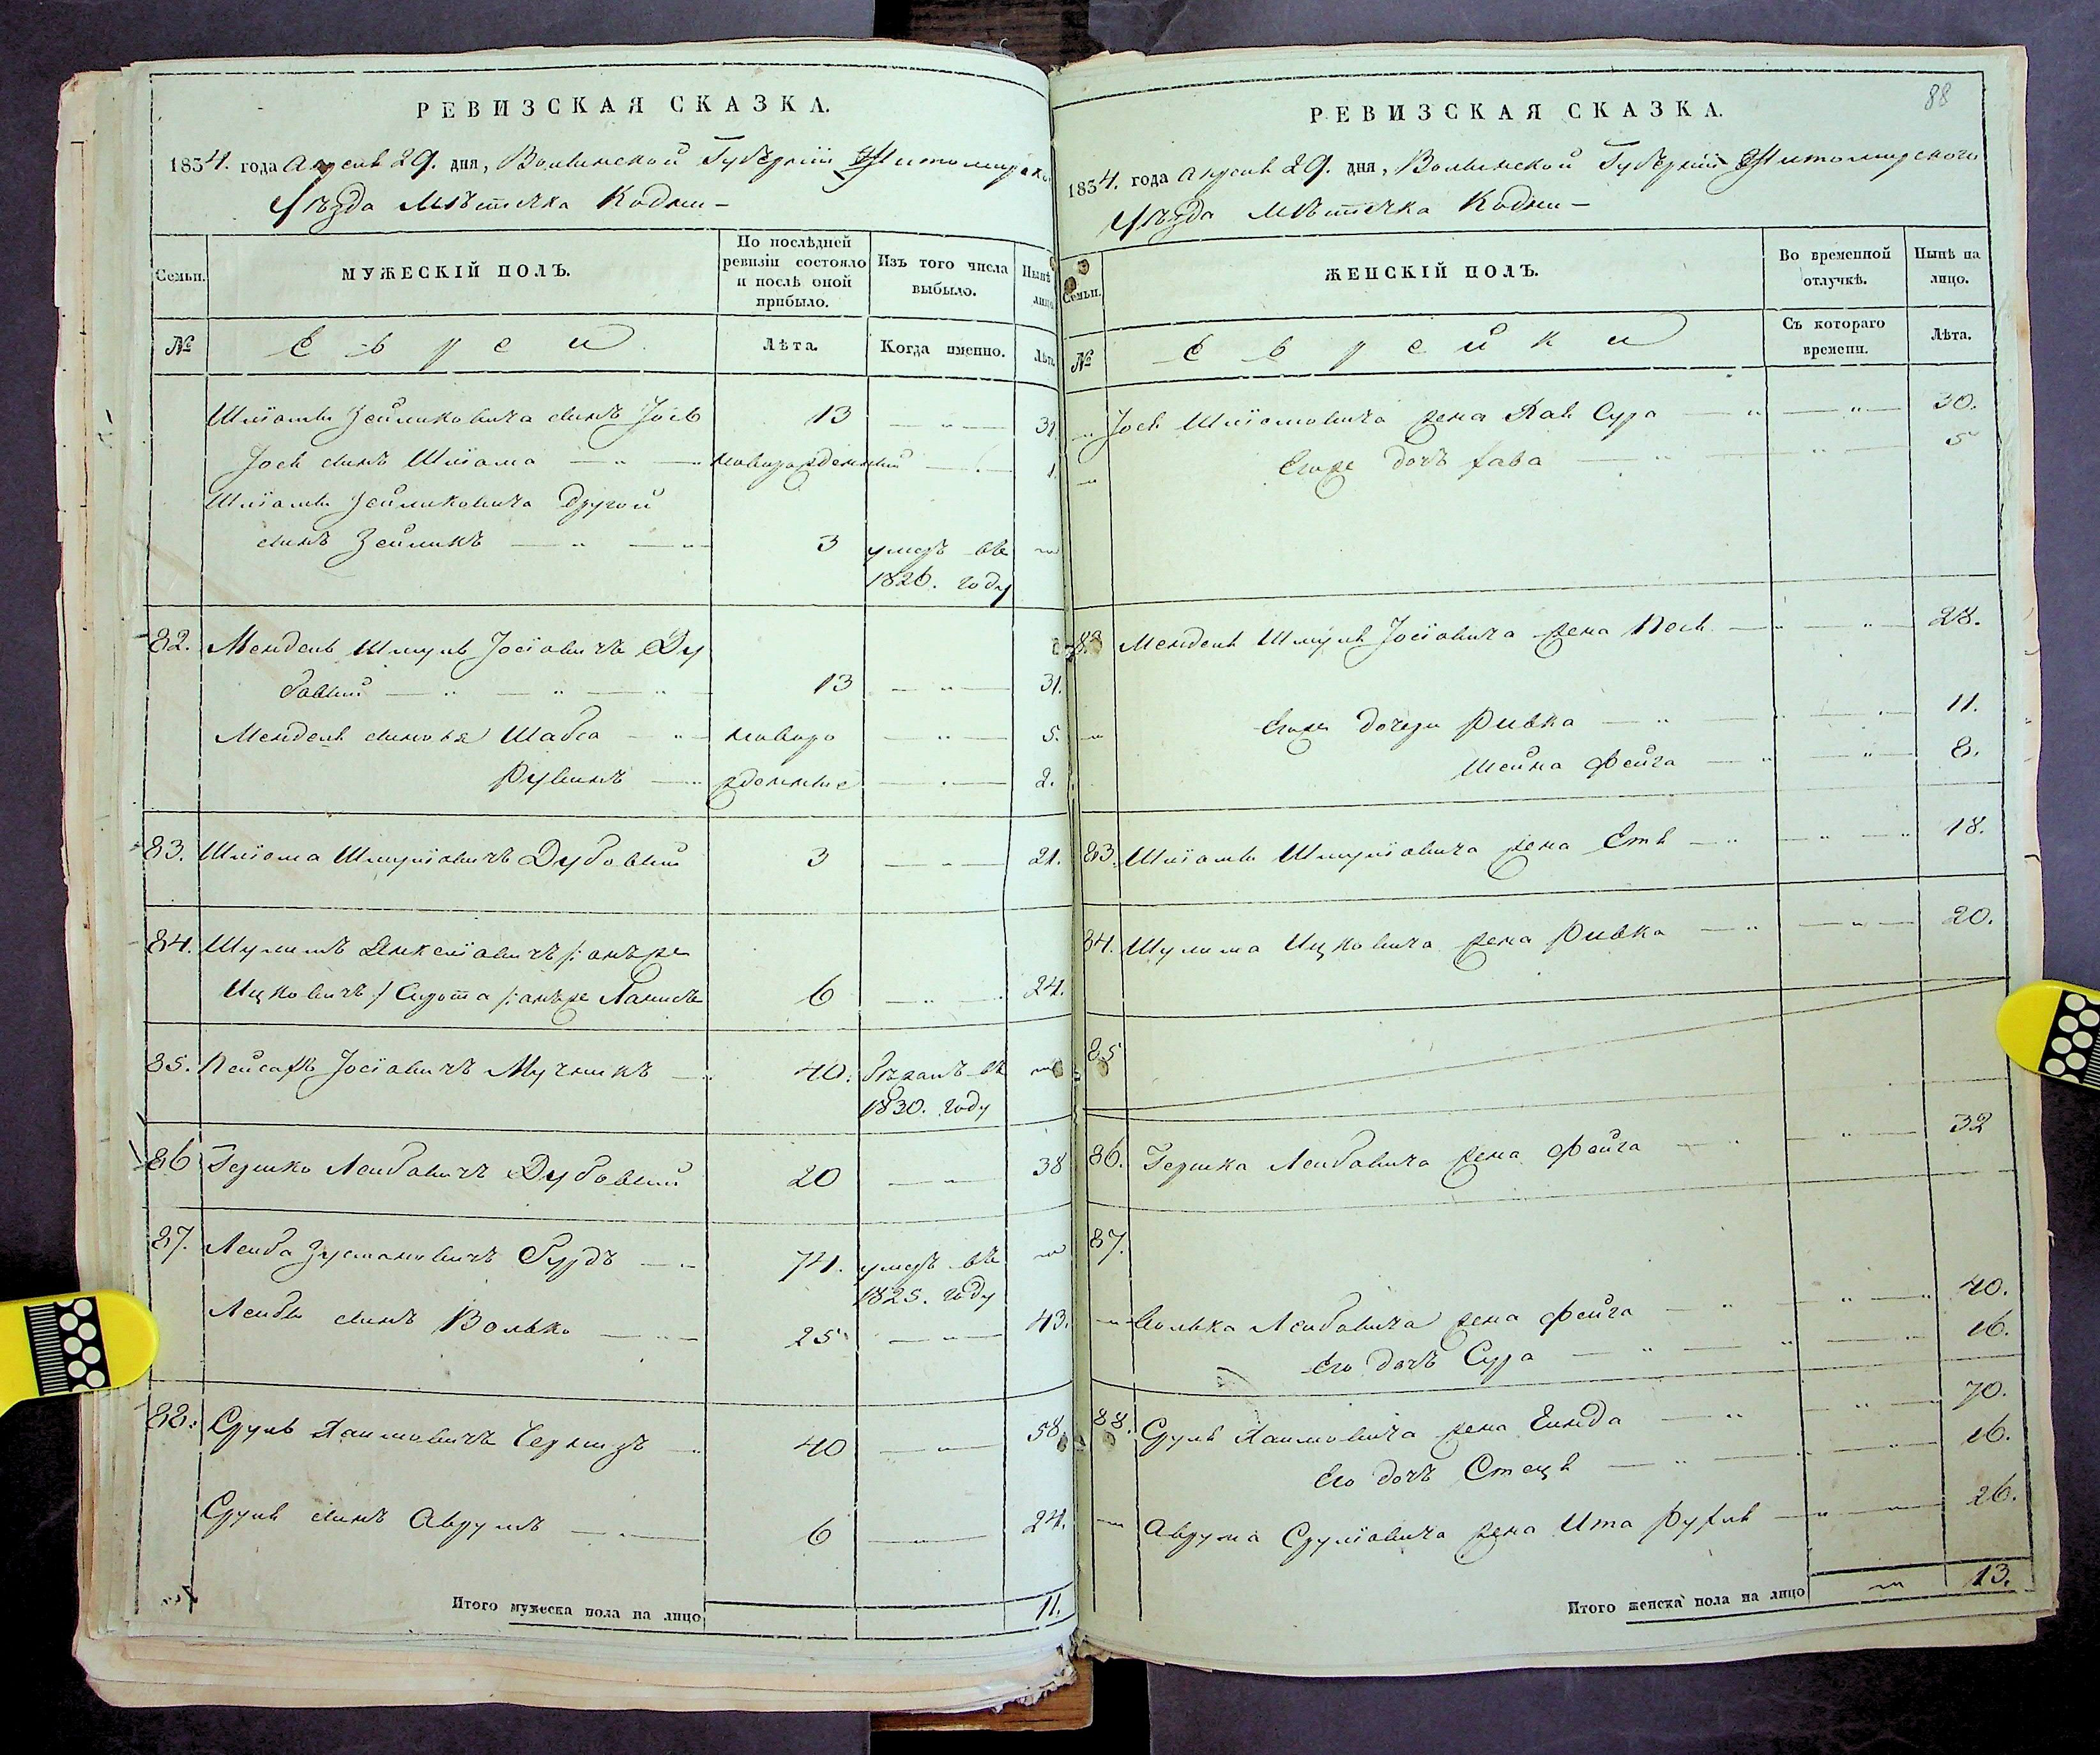 РЕВИЗСКАЯ СКАЗКА.
1834. года Апреля 29. дня, Волынской Губерніи Житомирско
Уѣзда Мѣстечка Кодни -
Семьи.
МУЖЕСКІЙ ПОЛЪ.
По послѣдней ревизіи состояло и послѣ оной прибыло.
Изъ того числа выбыло.
Нынѣ лицо
№
Евреи
Лѣта.
Когда именно.
Лѣта
Шліомы Зейликовича сынъ Іось 13 — " — 31
Іося сынъ Шліома — " — новорожденный — " — 1.
Шліомы Зейликовича другой
сынъ Зейликъ — " — 3 умеръ въ "
1826. году
82. Мендель Шмуль Іосіовичъ Ду
бовый — " — " — " 13 — " — 31.
Менделя сыновья Шабса — " — новоро — " — 5.
Рувинъ — " жденные — " — 2.
83. Шліома Шмуліовичъ Дубовый 3 — " — 21.
84. Шулимъ Янкеліовичъ /: онъже
Ицковичъ :/ Сирота /: онъже 6 — " — 24.
85. Пейсахъ Іосіовичъ Мучникъ — " 40. бѣжалъ въ "
1830. году
86 Гершко Лейбовичъ Дубовый 20 — " — 38
87. Лейба Зусмановичъ Гурдъ — " 74. умеръ въ "
1825. году
Лейбы сынъ Волько — " — 25 — " — 43.
88. Сруль Хаимовичъ — " 40 — " — 58.
Сруля сынъ Аврумъ — " — 6 — " — 24.
Итого мужеска пола на лицо 11.
88
РЕВИЗСКАЯ СКАЗКА.
1834. года Апреля 29. дня, Волынской Губерніи Житомирского
Уѣзда Мѣстечка Кодни -
Семьи.
ЖЕНСКІЙ ПОЛЪ.
Во временной отлучкѣ.
Нынѣ на лицо.
№
Еврейки
Съ котораго времени.
Лѣта.
" Іося Шліомовича жена Сура — " — " — 30.
" Егоже дочь Хава — " — " — 5
82 Менделя Шмуля Іосіовича жена Песя — " — " — 28.
" Егоже дочери Ривка — " — " — 11.
Шейна Фейга — " — " — 8.
83. Шліомы Шмуліовича жена — " — " — 18.
84. Шулима Ицковича жена Ривка — " — " — 20.
85
86. Гершка Лейбовича жена Фейга — " — " — 32
87.
" Волька Лейбовича жена Фейга — " — " — 40.
Его дочь Сура — " — " — 16.
88. Сруля Хаимовича жена — " — " — 70.
Его дочь — " — " — 16.
" Аврума Сруліовича жена Ита Рухля — " — 26.
Итого женска пола на лицо " 13.